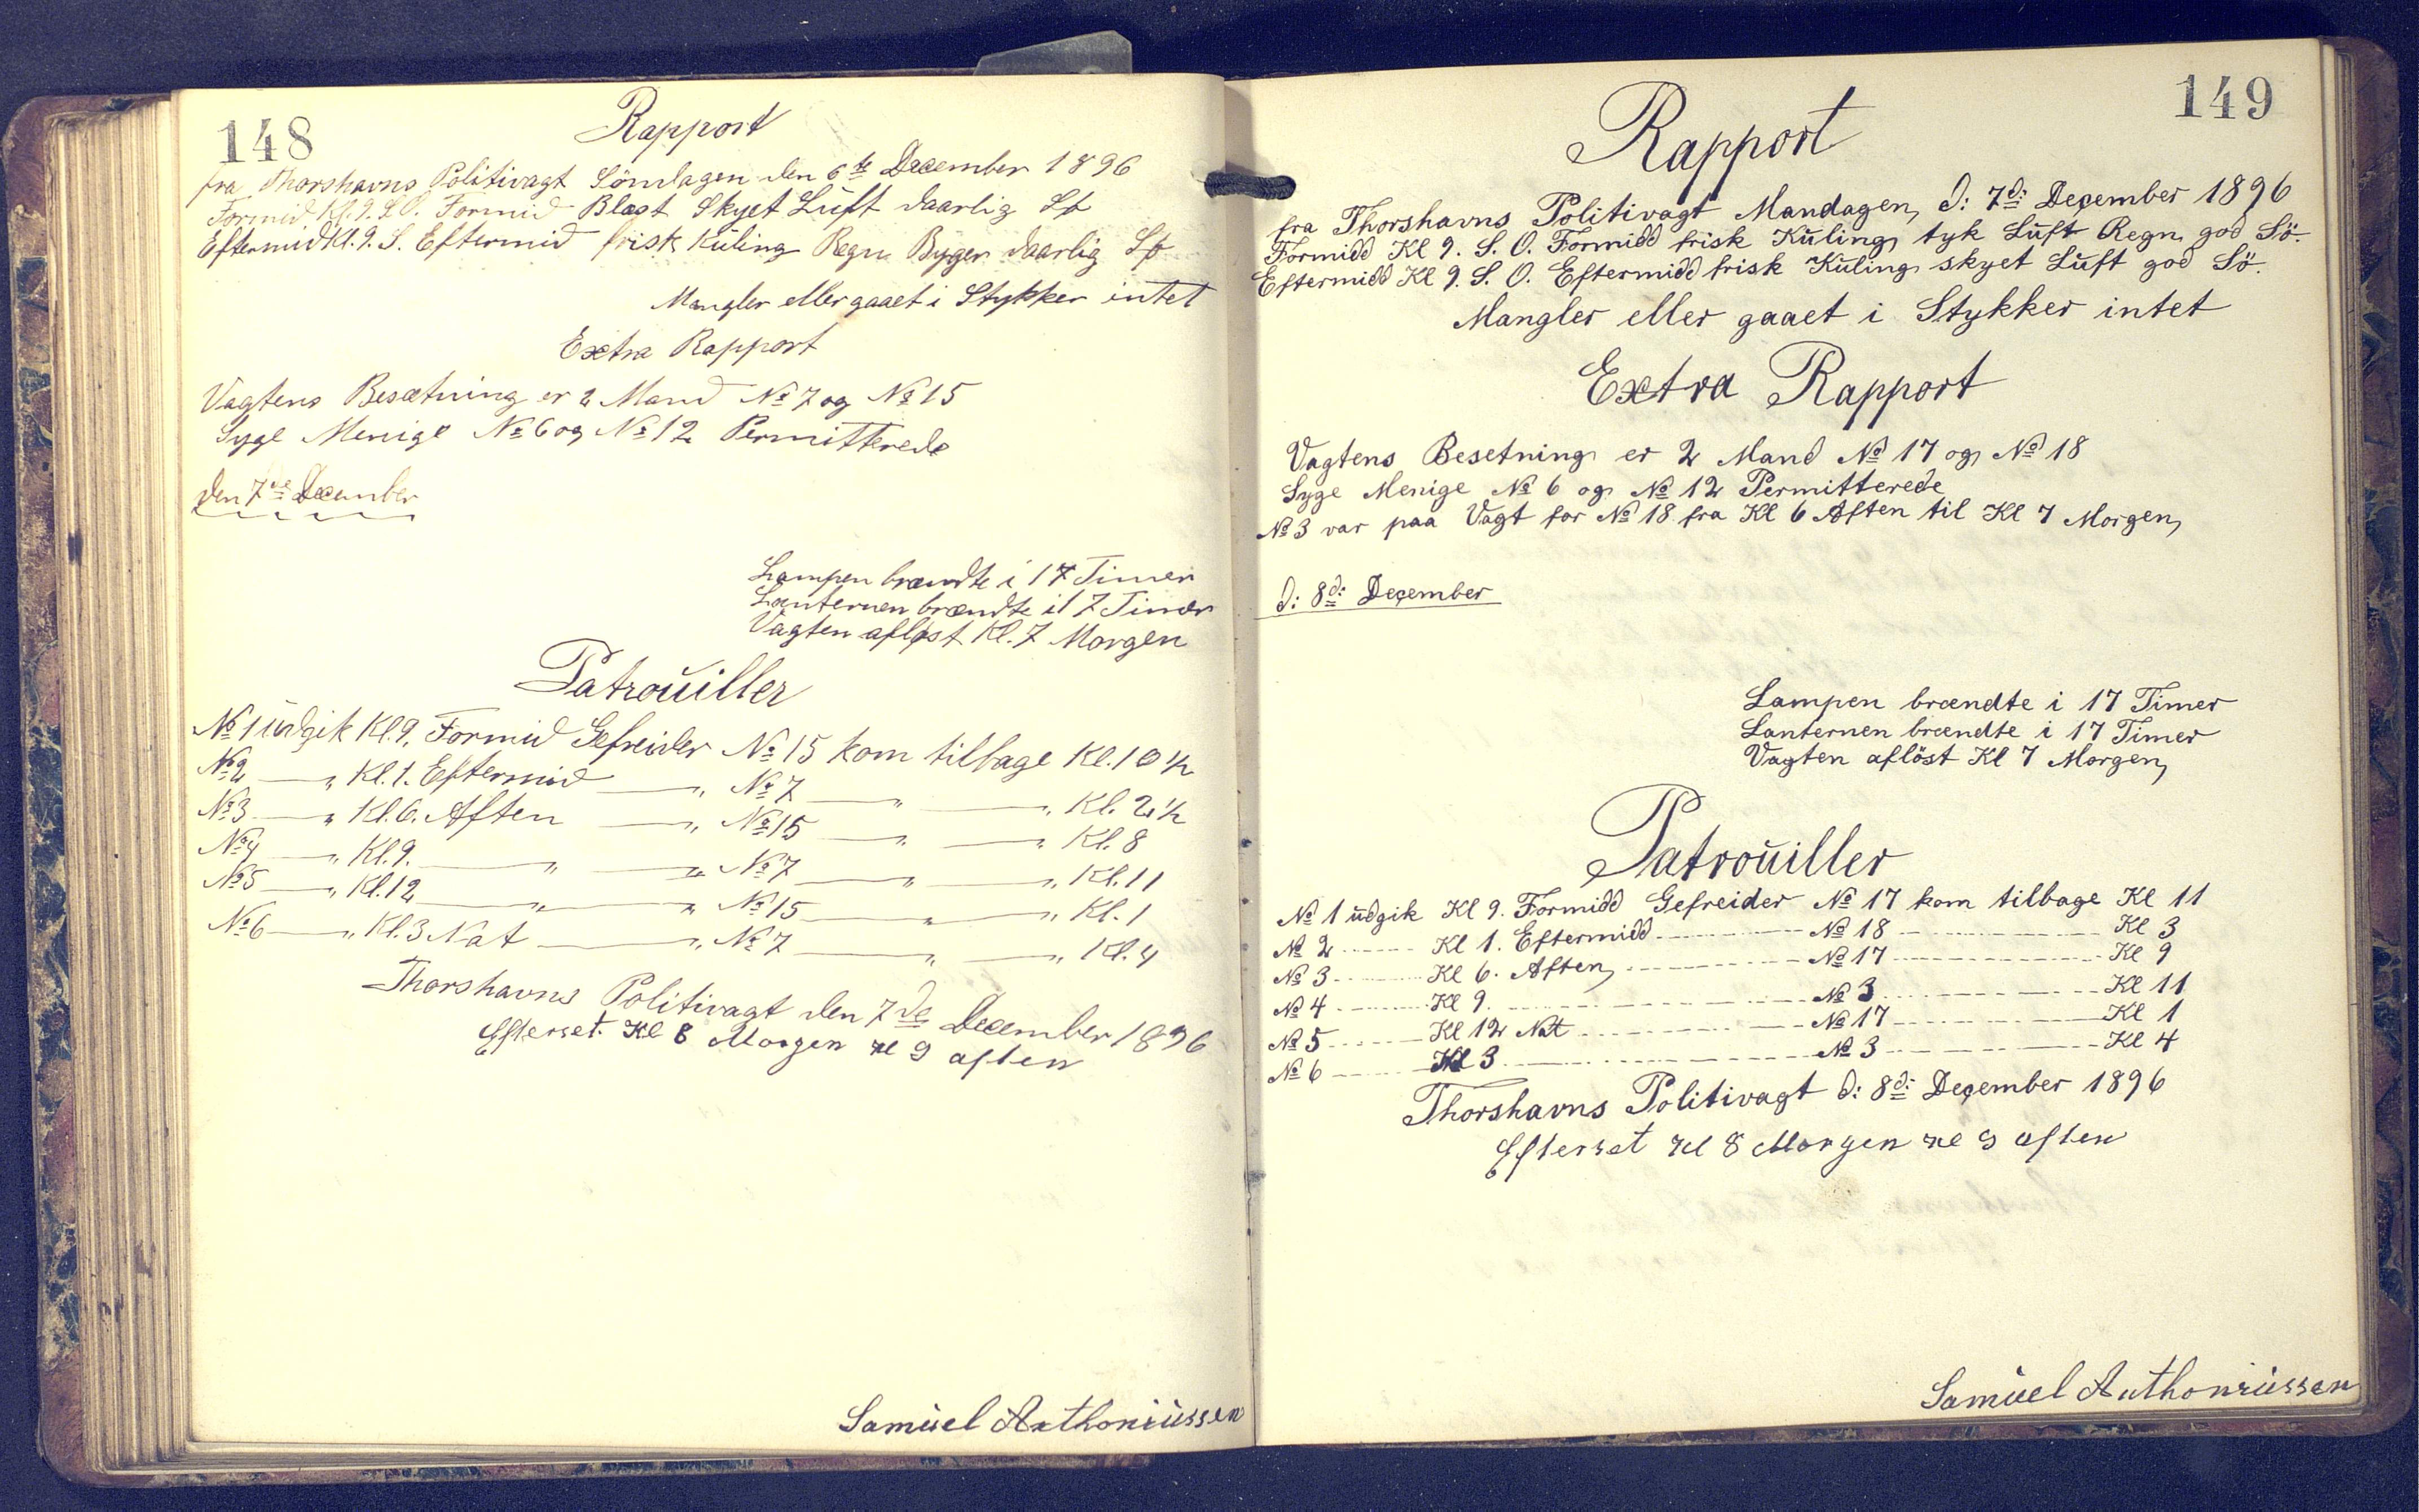 148
Rapport
fra Thorshavns Politivagt Söndagen den 6te December 1896
Formid Kl. 9. S.O. Formid Blæst Skyet Luft daarlig Sø
Eftermid Kl. 9. S. Eftermid frisk Kuling Regn Byger daarlig Sø
Mangler eller gaaet i Stykker intet
Extra Rapport
Vagtens Besætning er 2 Mand No 7 og No 15
Syge Menige No 6 og No 12 Permitterede
den 7de December
Lampen brændte i 17 Timer
Lanternen brændte i 17 Timer
Vagten afløst Kl. 7 Morgen
Patroüiller
No 1 üdgik Kl. 9. Formid Gefreider No 15 kom tilbage Kl. 10 1/2
No 2 — „ Kl. 1. Eftermid — „ No 7 — „ — „ Kl. 2 1/2
No 3 — „ Kl. 6. Aften — „ No 15 — „ — „ Kl. 8
No 4 — „ Kl. 9. — „ — „ No 7 — „ — „ Kl. 11
No 5 — „ Kl. 12 — „ — „ No 15 — „ — „ Kl. 1
No 6 — „ Kl. 3 Nat — „ No 7 — „ — „ Kl. 4
Thorshavns Politivagt den 7de December 1896
Efterset Kl 8 Morgen Kl 9 aften
Samüel Anthoniüssen
149
Rapport
fra Thorshavns Politivagt Mandagen, d: 7d: December 1896
Formidd Kl 9. S. O. Formidd frisk Küling, tyk Lüft Regn, god Sö.
Eftermidd Kl 9. S. O. Eftermidd frisk Küling, skyet Lüft god Sö.
Mangler eller gaaet i Stykker intet
Extra Rapport
Vagtens Besetning er 2 Mand No 17 og No 18
Syge Menige No 6 og No 12 Permitterede
No 3 var paa Vagt for No 18 fra Kl 6 Aften til Kl 7 Morgen,
d: 8d: December
Lampen brændte i 17 Timer
Lanternen brændte i 17 Timer
Vagten aflöst Kl 7 Morgen,
Patroüiller
No 1 üdgik Kl 9. Formidd Gefreider No 17 kom tilbage Kl 11
No 2 ---- Kl 1. Eftermidd ---- No 18 ---- Kl 3
No 3 ---- Kl 6. Aften, ---- No 17 ---- Kl 9
No 4 ---- Kl 9. ---- No 3 ---- Kl 11
No 5 ---- Kl 12 Nat ---- No 17 ---- Kl 1
No 6 ---- Kl 3 ---- No 3 ---- Kl 4
Thorshavns Politivagt d: 8d: December 1896
Efterset Kl 8 Morgen Kl 9 aften
Samüel Anthoniüssen